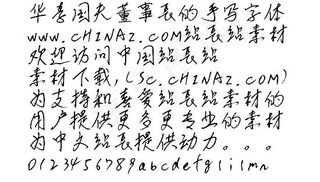 华春国夫董事长的手写字体
www.CHINAZ.COM站长站素材
欢迎访问中国站长站
素材下载，(SC.CHINAZ.COM)
为支持和喜爱站长站素材的
用户提供更多更专业的素材
为中文站长提供动力。。。
0123456789abcdefgliimn